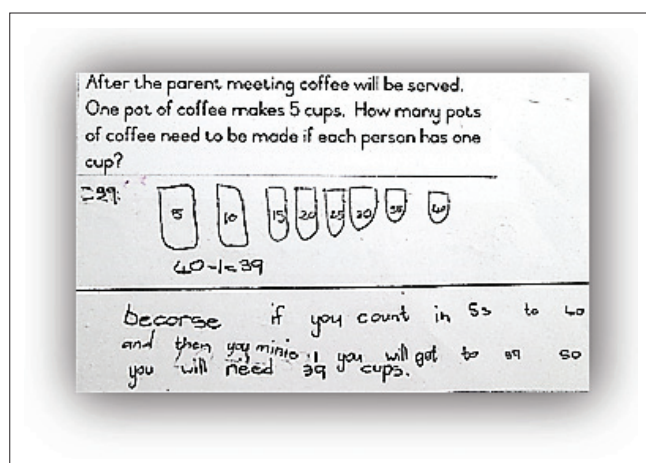 After the parent meeting coffee will be served.
One pot of coffee makes 5 cups. How many pots
of coffee need to be made if each person has one
cup?
=39
5 10 15 20 25 30 35 40
40-1=39
becorse if you count in 5s to 40
and then you minie 1 you will get to 39 so
you will need 39 cups.